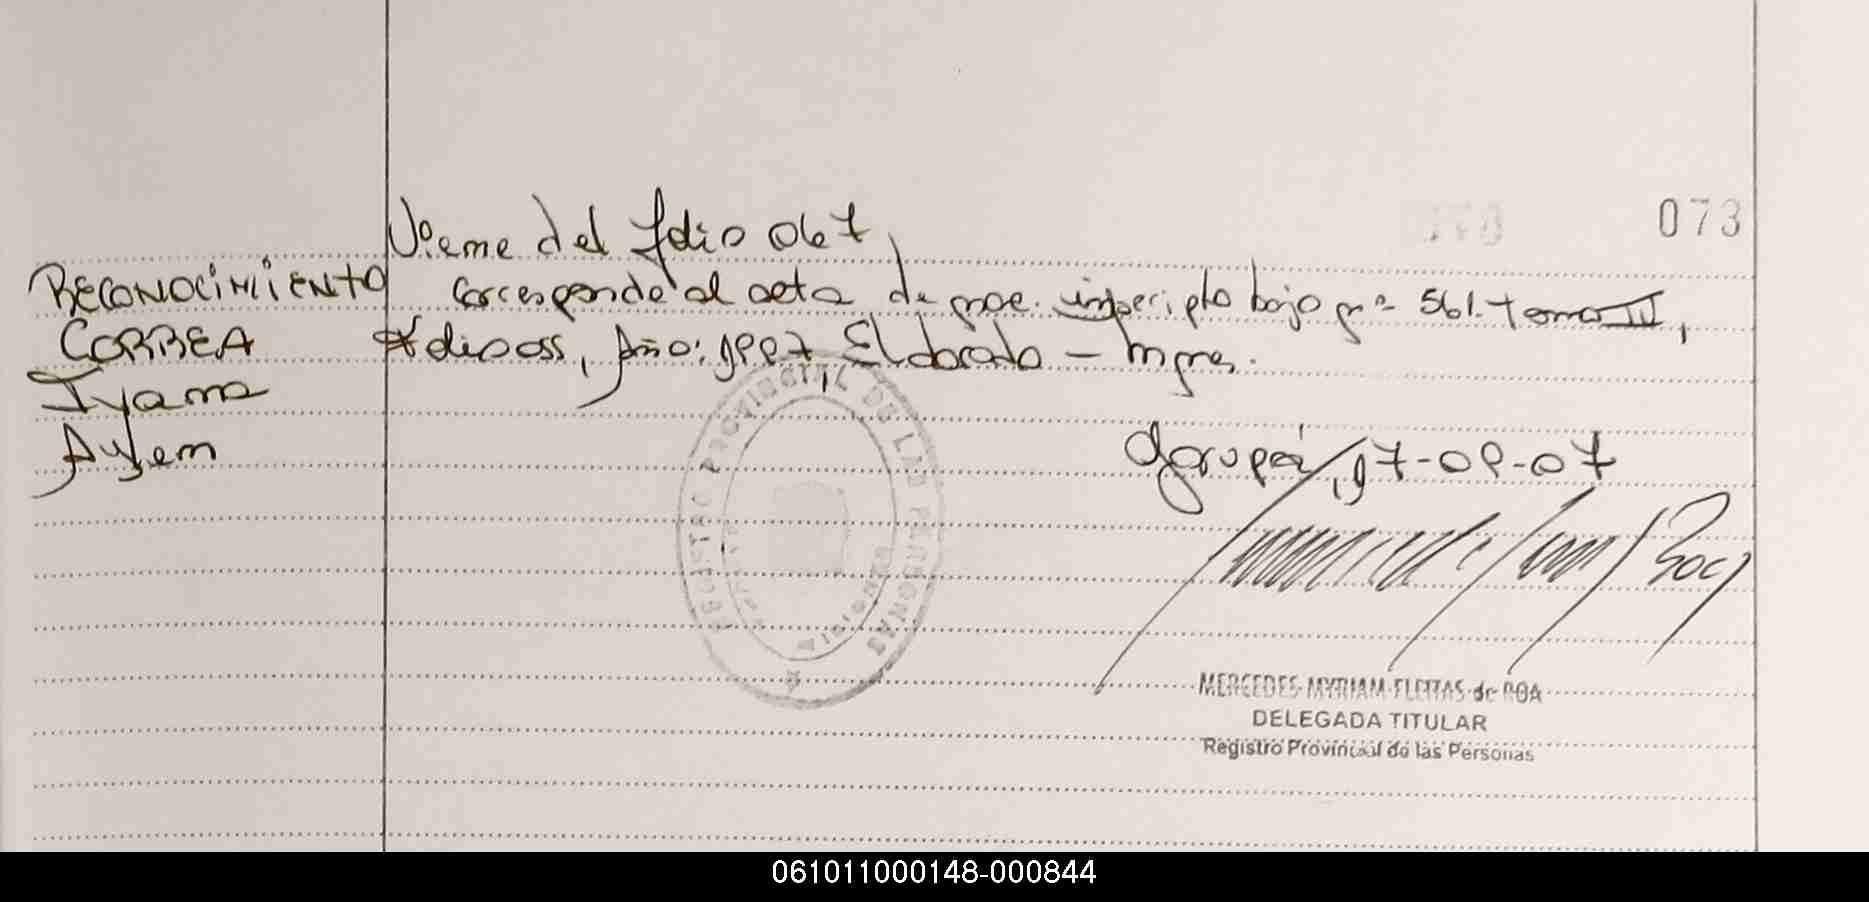 073
Viene del folio 067,
RECONOCIMIENTO
corresponde al acta de nac. inscripta bajo nº 561. tomo III,
CORREA
folio 055, Año: 1997 Eldorado - Mnes.
Iyana
Aylen
Garupá, 17-09-07
REGISTRO PROVINCIAL DE LAS PERSONAS
MERCEDES MYRIAM FLEITAS de ROA
DELEGADA TITULAR
Registro Provincial de las Personas
061011000148-000844